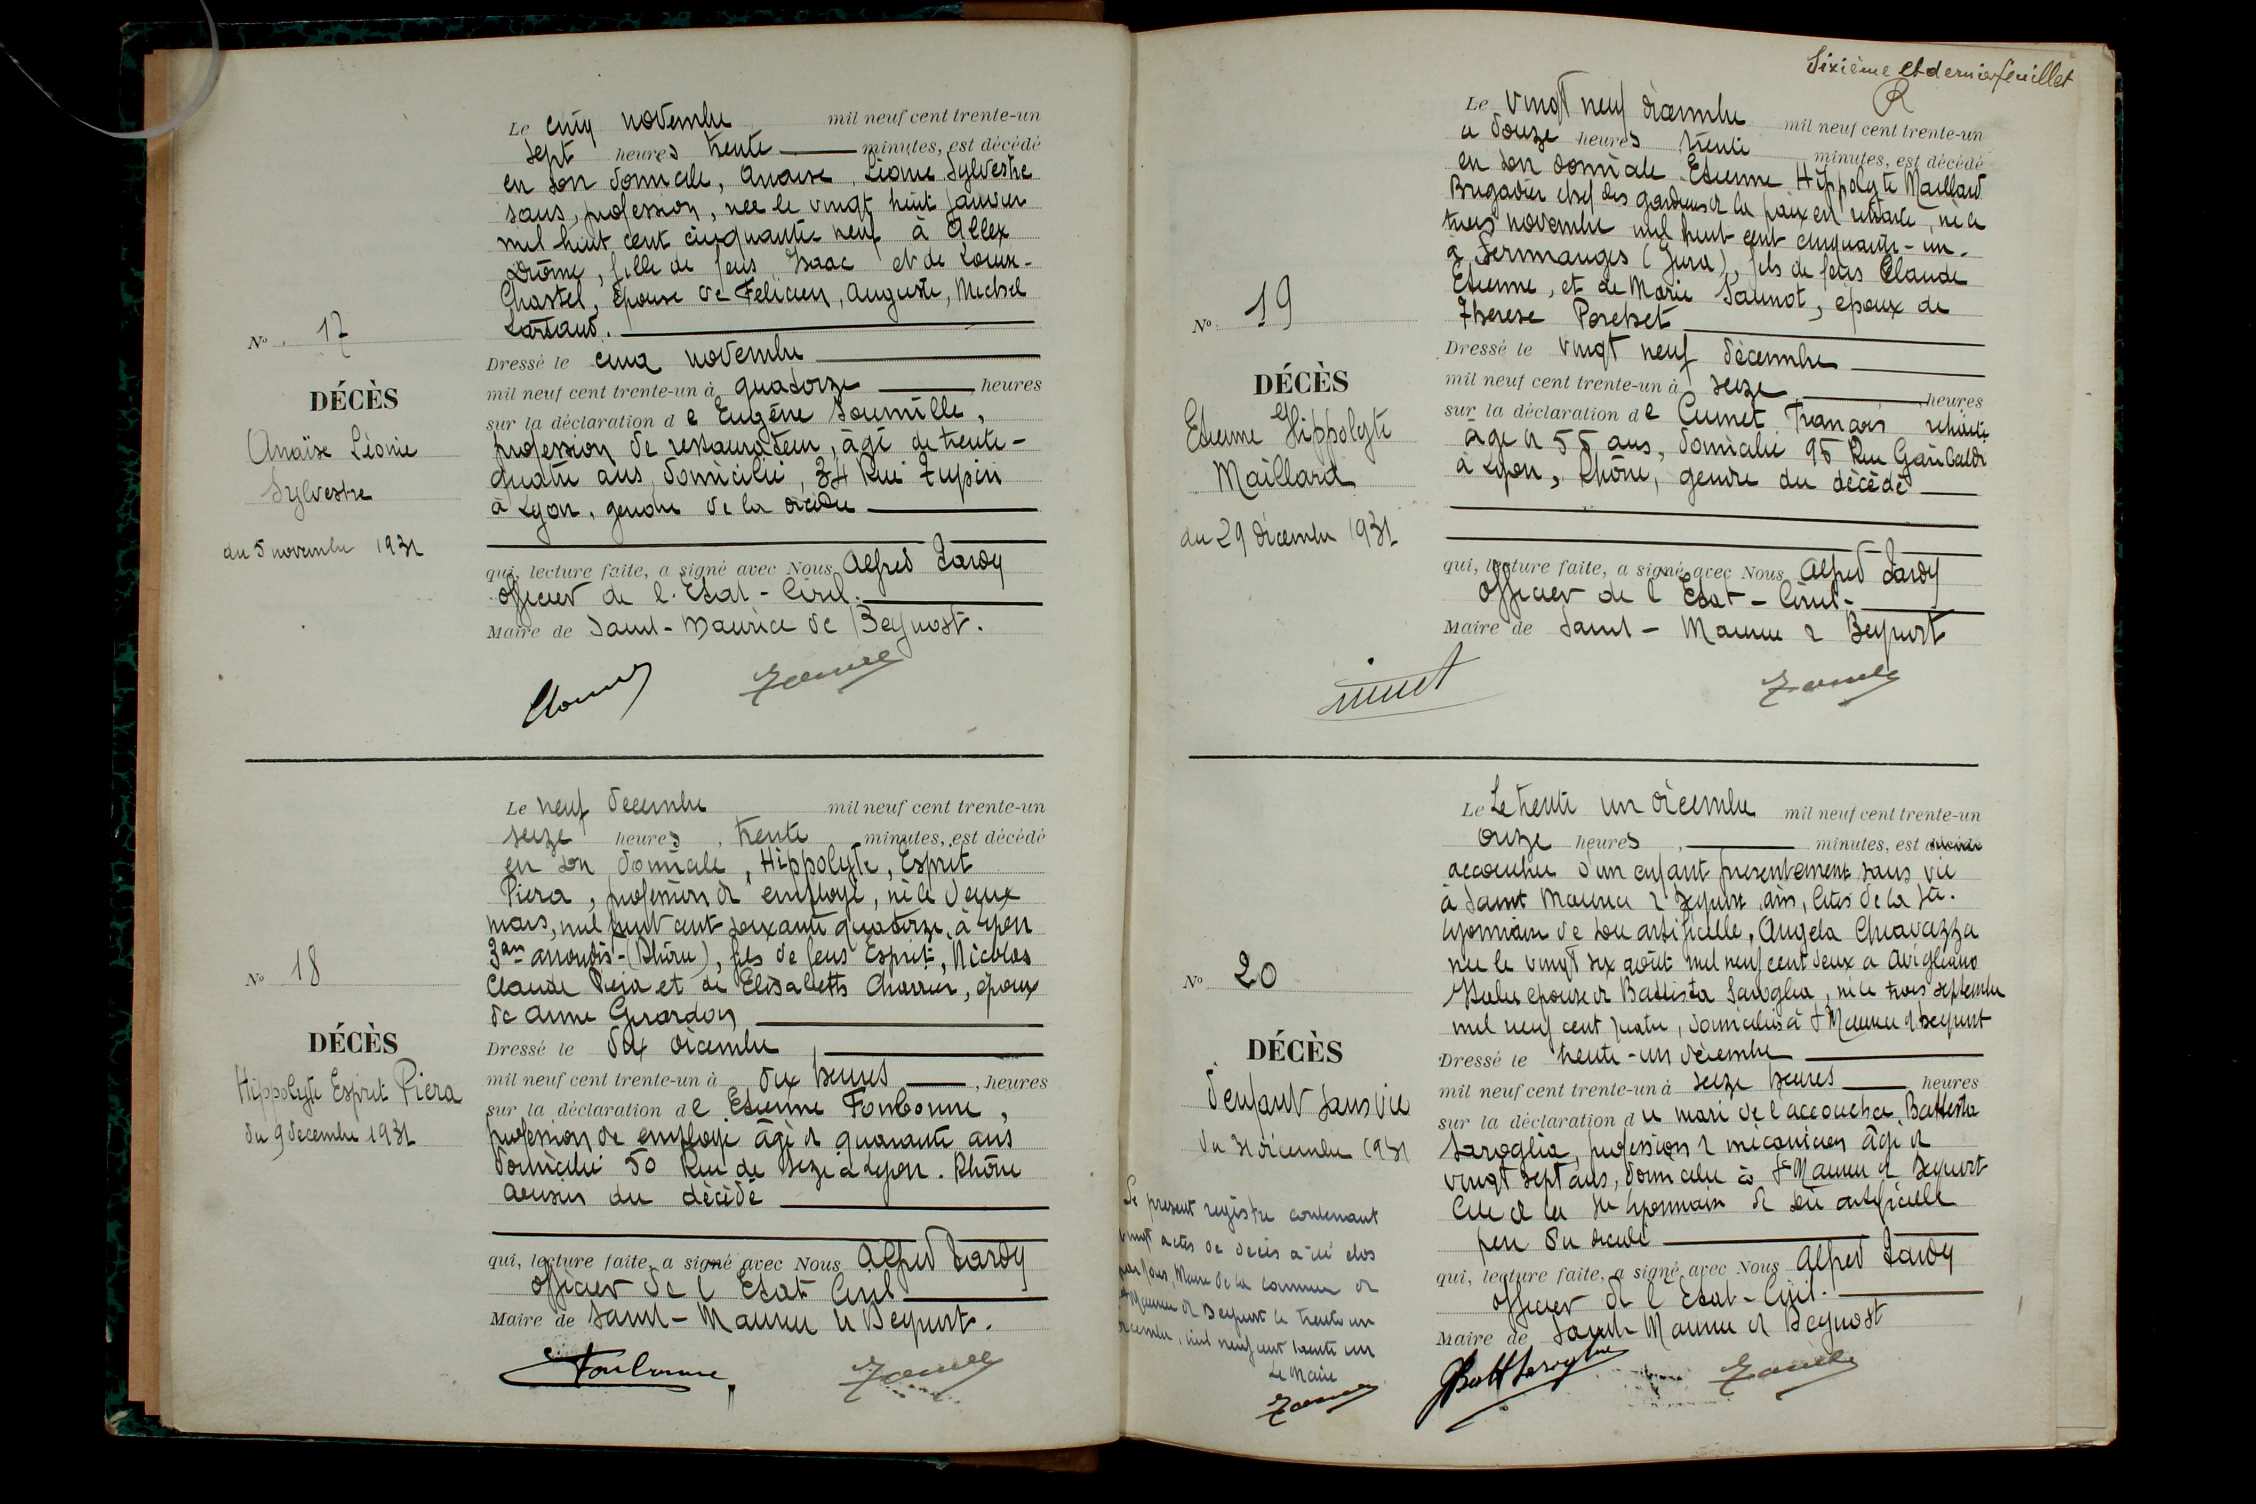 Le cinq novembre mil neuf cent trente-un
sept heures trente minutes, est décédé
en son domicile, Anaïse, Léonie Sylvestre
sans, profession, née le vingt huit janvier
mil huit cent cinquante-neuf à Allex
Drôme, fille de feus Isaac et de Louise-
Chastel, épouse de Felicien, Auguste, Michel
Lartaud.
No 17
DÉCÈS
Anaïse Léonie
Sylvestre
du 5 novembre 1931
Dressé le cinq novembre
mil neuf cent trente-un à quatorze heures
sur la déclaration de Eugène Soumille,
profession de restaurateur, âgé de trente-
quatre ans, domicilié, 34 Rue Tupin
à Lyon, gendre de la décédée
qui, lecture faite, a signé avec Nous Alfred Tardy
officier de l'Etat-Civil.
Maire de Saint-Maurice de Beynost.
Le neuf decembre mil neuf cent trente-un
seize heures, trente minutes, est décédé
en son domicile, Hippolyte, Esprit
Piera, profession de employé, né le deux
mars, mil huit cent soixante quatorze, à Lyon
3em arrondis-(Rhône), fils de feus Esprit, Nicolas
Claude Piera et de Elisabeth Charrier, époux
de Anne Girardon
No 18
DÉCÈS
Hippolyte Esprit Piera
du 9 decembre 1931
Dressé le dix décembre
mil neuf cent trente-un à dix heures, heures
sur la déclaration de Etienne Fonbonne,
profession de employé âgé de quarante ans
domicilié 50 Rue de Sèze à Lyon. Rhône
cousin du décédé
qui, lecture faite, a signé avec Nous Alfred Tardy
officier de l'Etat Civil
Maire de Saint-Maurice de Beynost.
Fonbonne
Sixième et dernier feuillet
Le vingt neuf décembre mil neuf cent trente-un
à douze heures trente minutes, est décédé
en son domicile Etienne Hippolyte Maillard
Brigadier chef des gardiens de la paix en retraite, né le
trois novembre mil huit cent cinquante-un.
à Sermanges (Jura), fils de feus Claude
Etienne, et de Marie Saunot, époux de
Therese Porchet
No 19
DÉCÈS
Etienne Hippolyte
Maillard
du 29 décembre 1931
Dressé le vingt neuf décembre
mil neuf cent trente-un à seize heures
sur la déclaration de Cumet François retraité
âgé de 55 ans, domicilié 95 Rue Garibaldi
à Lyon, Rhône, gendre du décédé
qui, lecture faite, a signé avec Nous Alfred Tardy
officier de l'Etat-Civil-
Maire de Saint-Maurice de Beynost
Le Le trente un décembre mil neuf cent trente-un
onze heures, minutes, est décédé
accouchée d'un enfant présentement sans vie
à Saint Maurice de Beynost Ain, Cités de la Sté.
lyonnaise de soie artificielle, Angela Chiavazza
née le vingt six août mil neuf cent deux à Avigliano
Italie épouse de Battista Saroglia, né le trois septembre
mil neuf cent quatre, domiciliés à St Maurice de Beynost
No 20
DÉCÈS
d'enfant sans vie
du 31 décembre 1931
Dressé le trente-un décembre
mil neuf cent trente-un à seize heures heures
sur la déclaration du mari de l'accouchée Battista
Saroglia, profession de mécanicien âgé de
vingt sept ans, domicilié à St Maurice de Beynost
Cité de la Sté lyonnaise de soie artificielle
père du décédé
qui, lecture faite, a signé avec Nous Alfred Tardy
officier de l'Etat-Civil.
Maire de Saint Maurice de Beynost
Le present registre contenant
vingt actes de décès a été clos
par Nous, Maire de la commune de
St Maurice de Beynost le trente un
décembre, mil neuf cent trente un
Le Maire